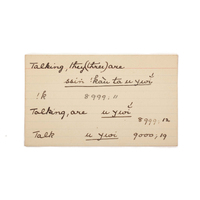 Talking, they (three) are
ssin 'kău ta u ywi
!k 8999, 11
Talking, are u ywi
8999, 12
Talk u ywi 9000, 19